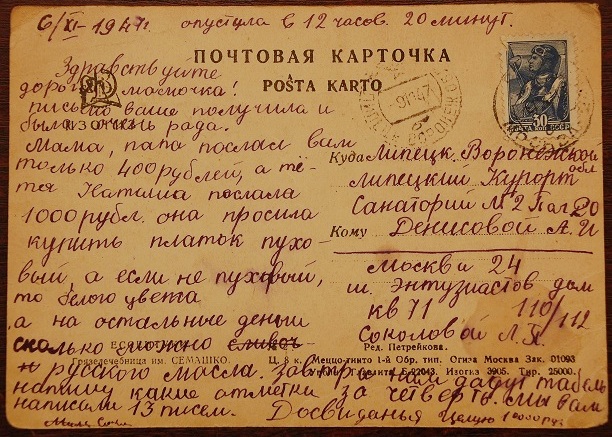 6/XI-1947г. опустила в 12 часов. 20 минут.
ПОЧТОВАЯ КАРТОЧКА
POŜTA KARTO
30
ПОЧТА СССР
Здравствуйте
дорогая мамочка!
письмо ваше получила и
была очень рада.
ИЗОГИЗ
Мама, папа послал вам
только 400 рублей, а тё-
тя Наталиа послала
1000 рубл. она просила
купить платок пухо-
вый, а если не пуховый,
то белого цвета
а на остальные деньги
сколько можно сливоч-
н русского масла. завтра нам дадут табель
напишу какие отметки за четверть. мы вам
написали 13 писем. Досвиданья Целую 1000 раз
Куда Липецк Воронежской
обл
Липецкий Курорт
Санаторий № 2 пал. 20
Кому Денисовой А. И
Москва 24
ш. Энтузиастов дом
кв 71 110/112
Соколовой Л.
Грязелечебница им. СЕМАШКО. Ц. 8 к. Меццо-тинто 1-й Обр. тип. Огиза Москва Зак. 01093
Ред. Петрейкова.
Изогиз 3905. Тир. 25000.